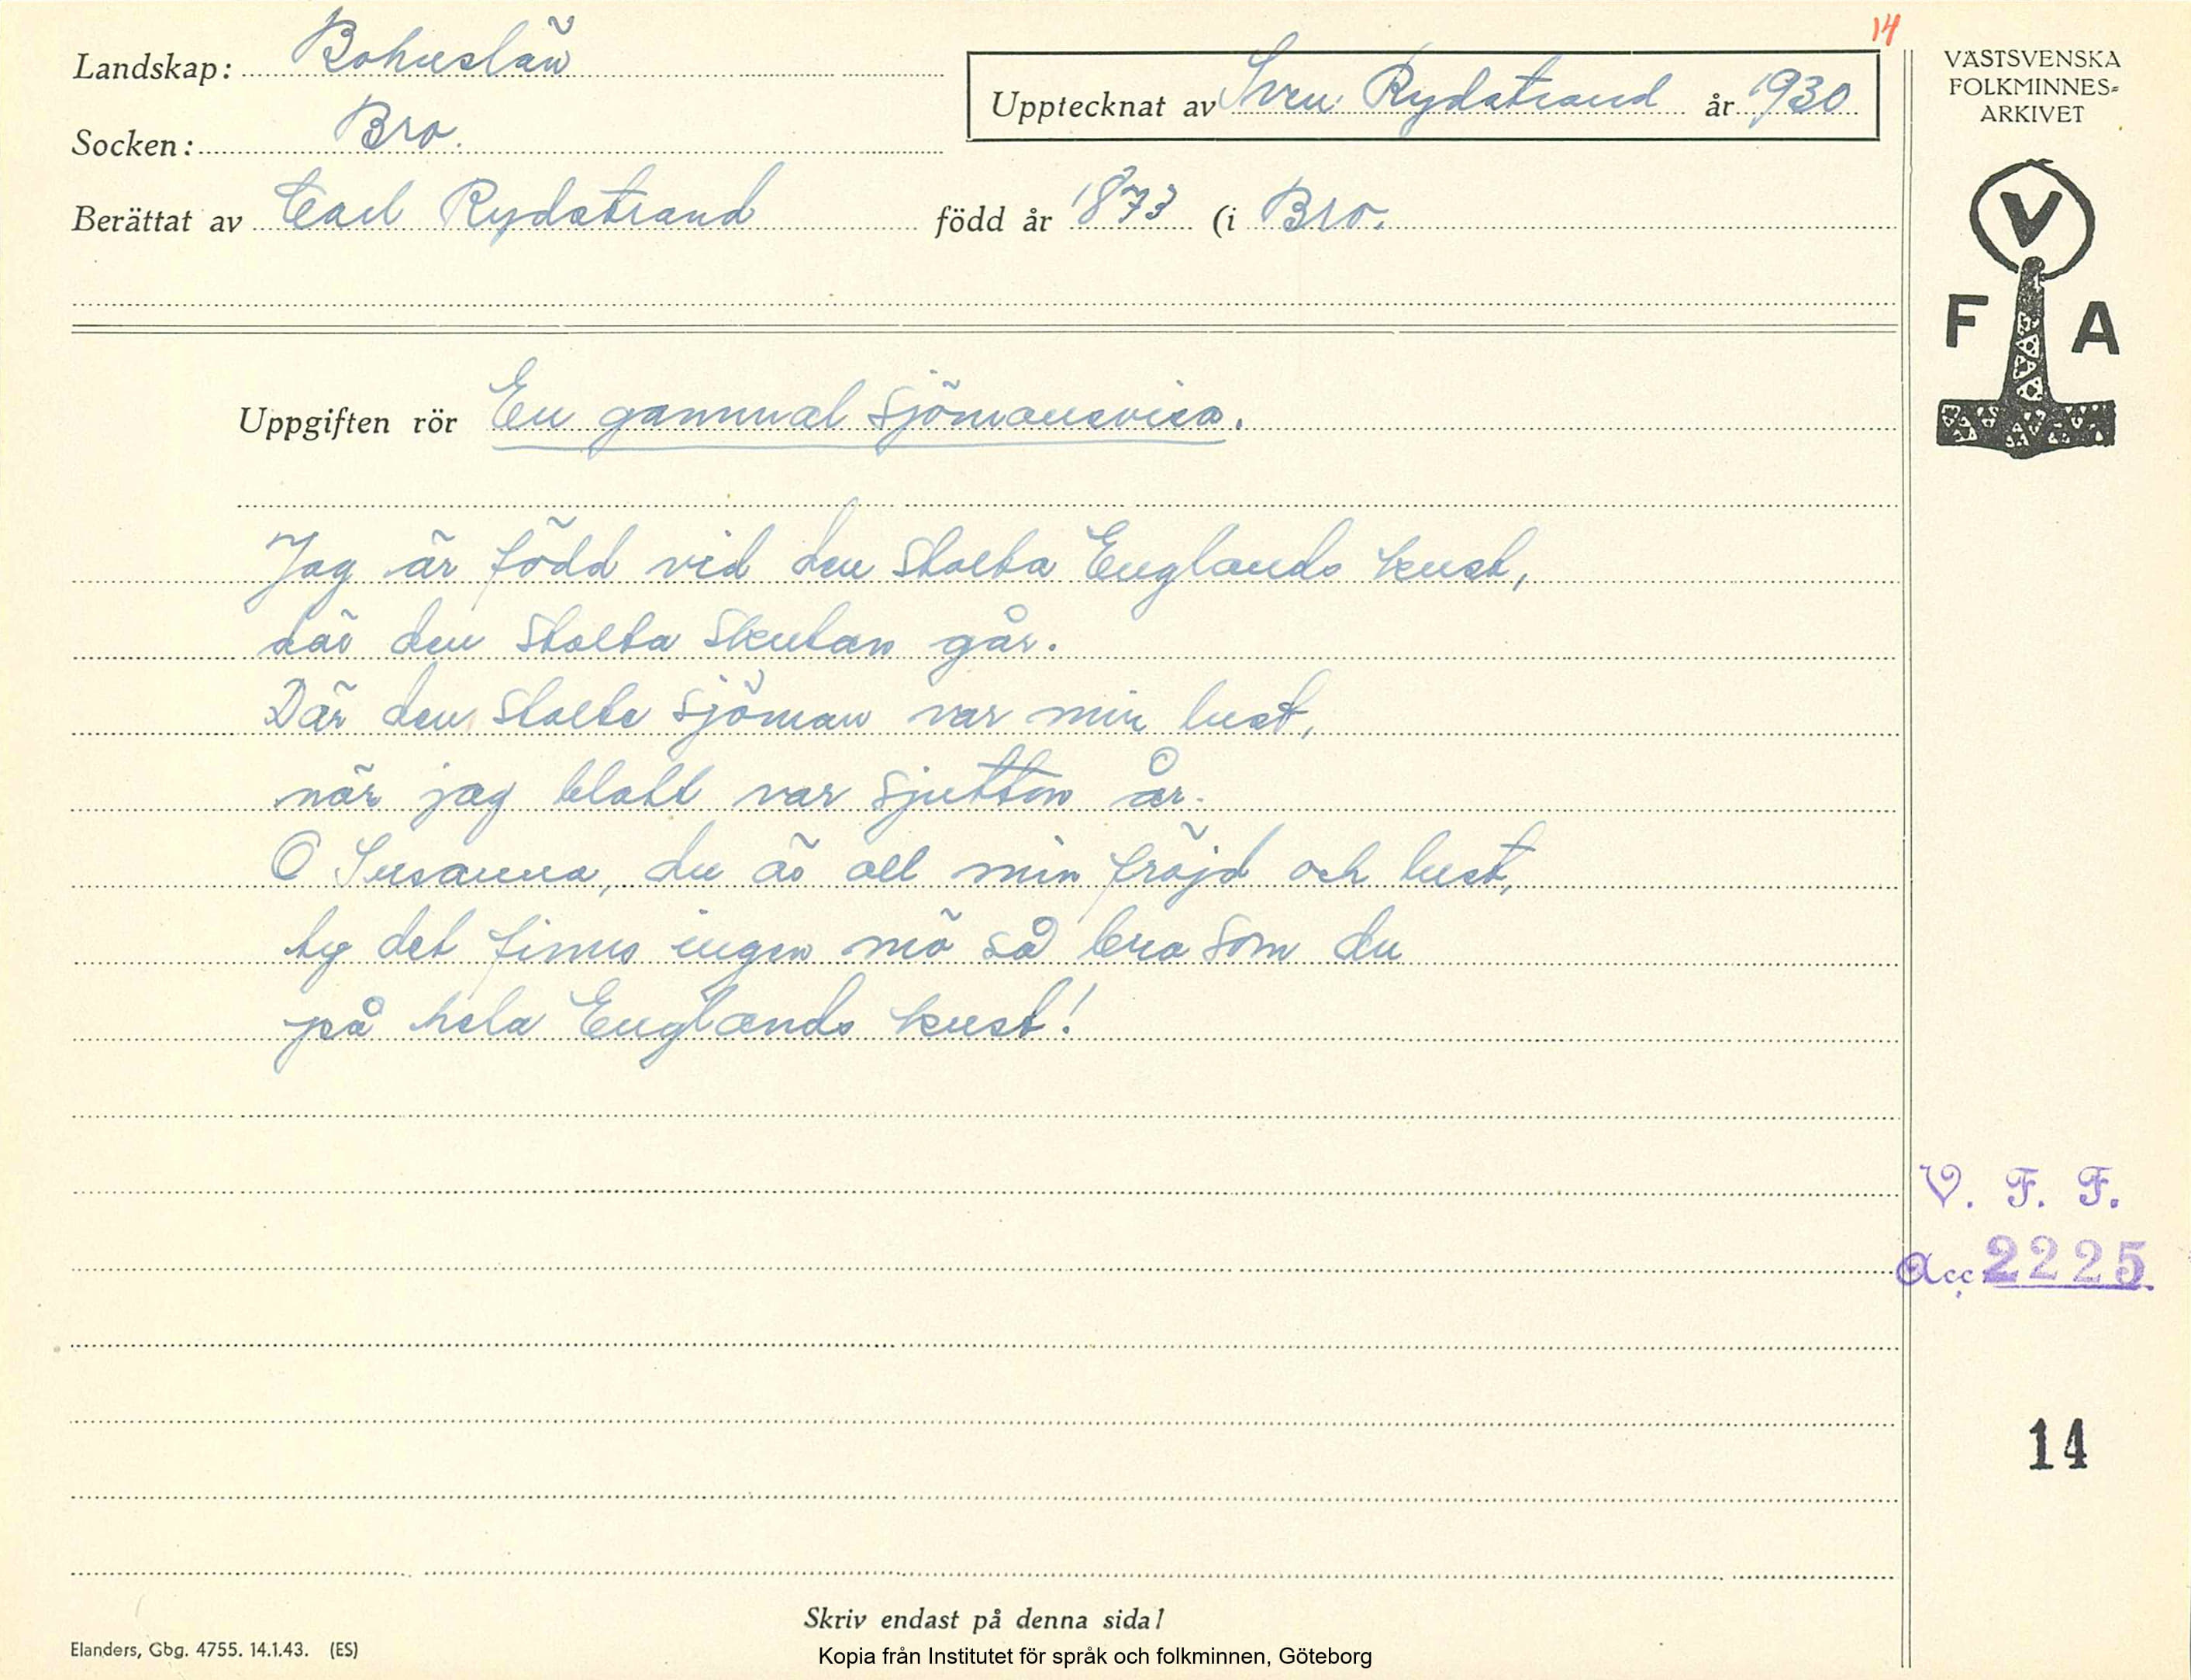 14
Landskap: Bohuslän
Upptecknat av Sven Rydstrand år 1930
VÄSTSVENSKA
FOLKMINNES-
ARKIVET
Socken: Bro.
Berättat av Carl Rydstrand född år 1873 (i Bro.
V
F A
Uppgiften rör En gammal sjömansvisa.
Jag är född vid den stolta Englands kust,
där den stolta skutan går.
Där den stolte sjöman var min lust,
när jag blott var sjutton år.
O Susanna, du är all min fröjd och lust,
ty det finns ingen mö så bra som du
på hela Englands kust!
V. F. F.
Acc 2225
14
Skriv endast på denna sida!
Elanders, Gbg. 4755. 14.1.43. (ES)
Kopia från Institutet för språk och folkminnen, Göteborg